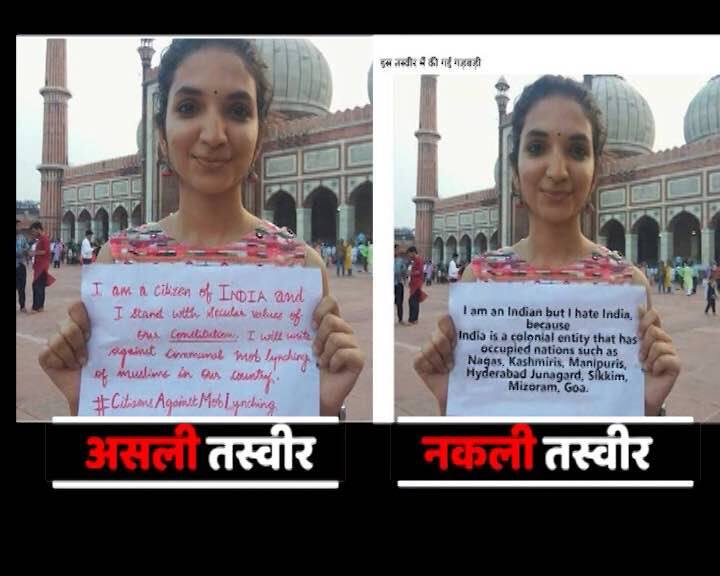 इस तस्वीर में की गई गड़बड़ी
I am a citizen of INDIA and
I stand with secular values of
our Constitution. I will write
against communal mob lynching
of muslims in our country.
#CitizensAgainstMobLynching
असली तस्वीर
I am an Indian but I hate India,
because
India is a colonial entity that has
occupied nations such as
Nagas, Kashmiris, Manipuris,
Hyderabad Junagard, Sikkim,
Mizoram, Goa.
नकली तस्वीर